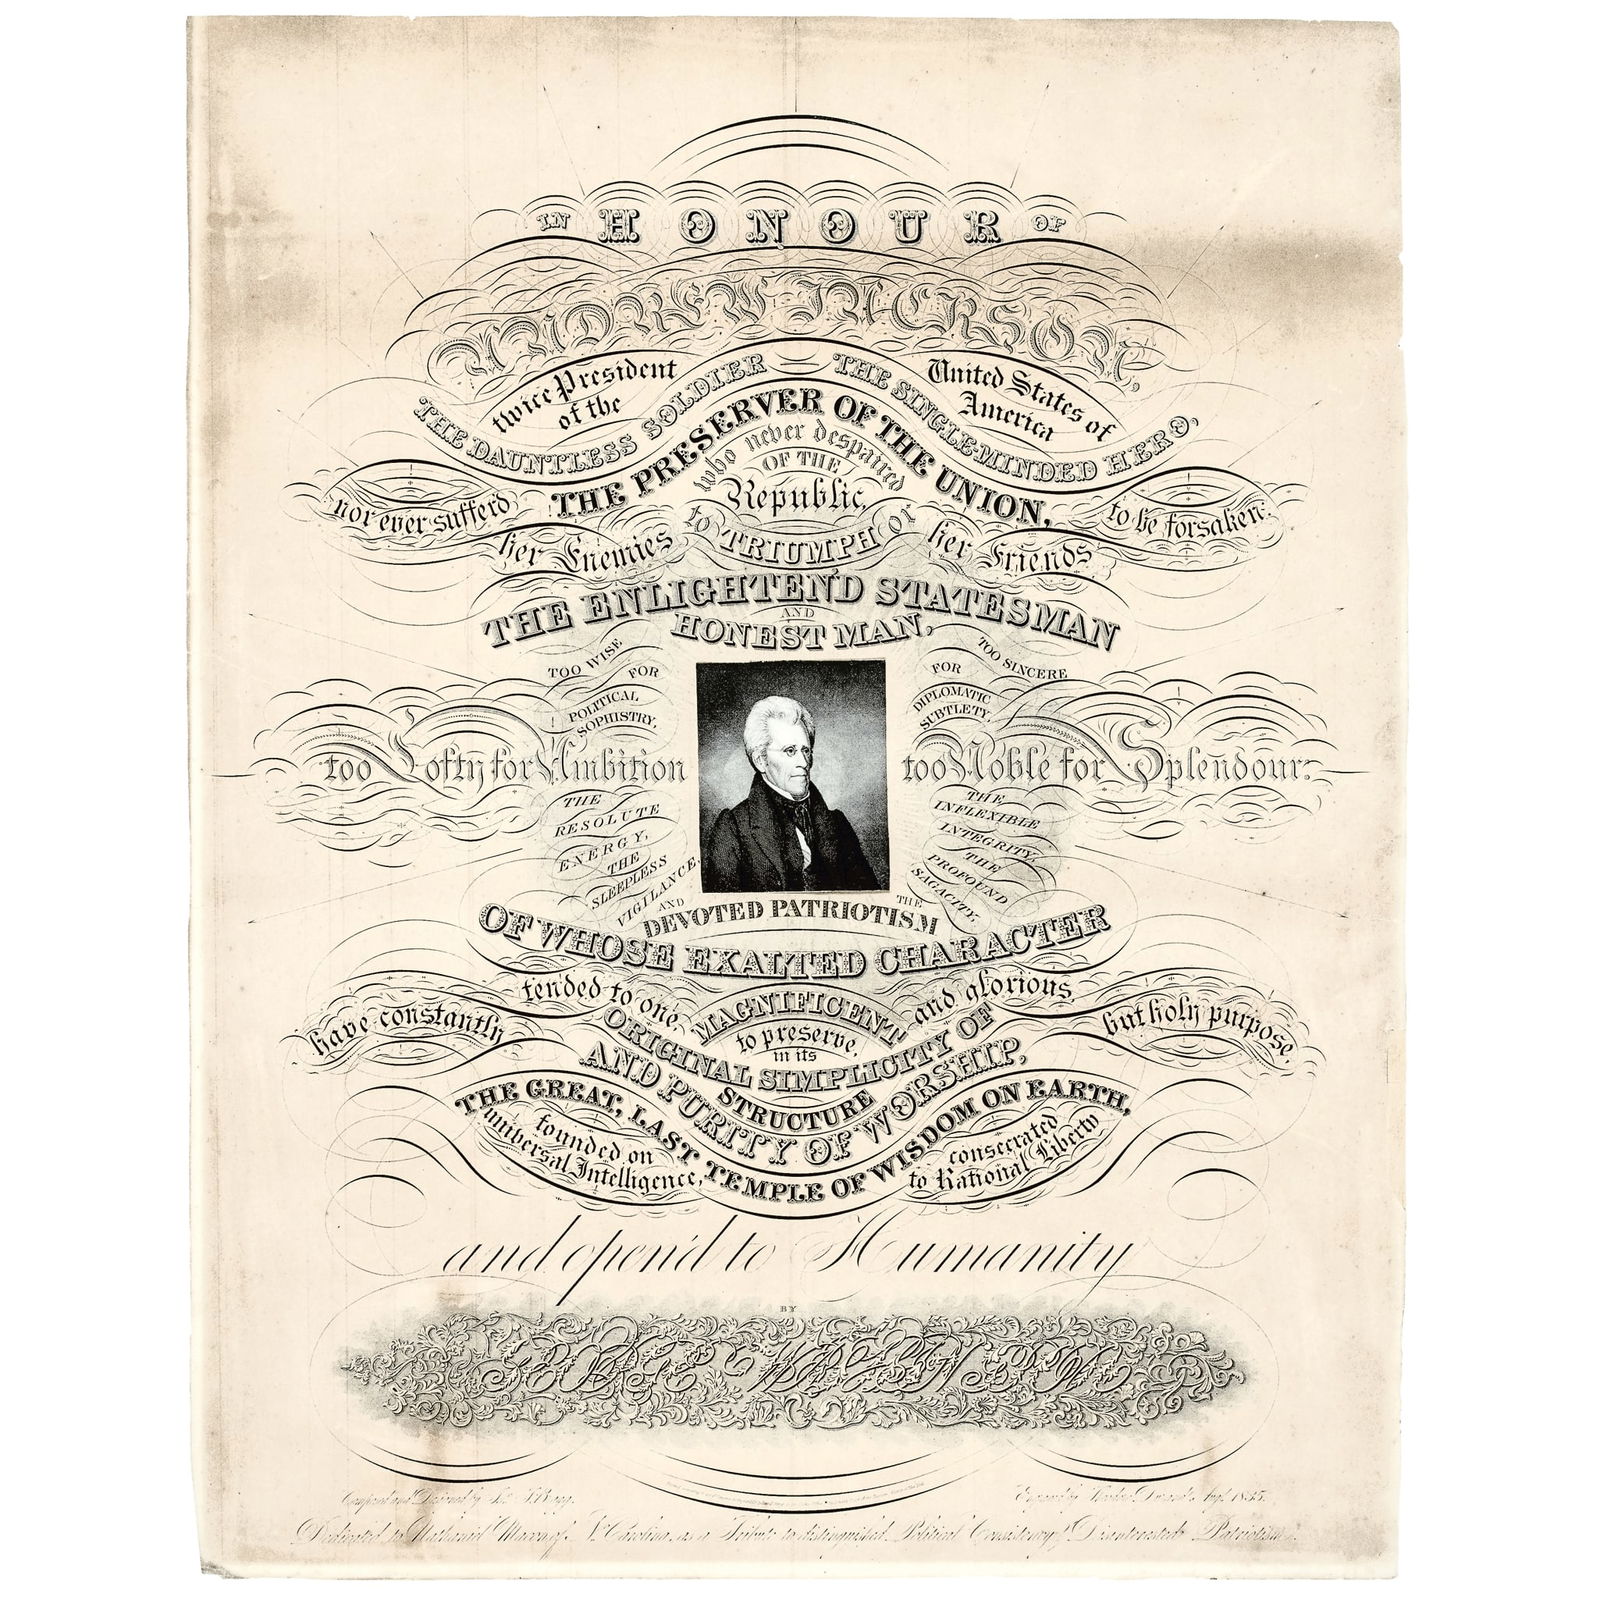 IN HONOUR OF
ANDREW JACKSON,
twice President of the United States of America
THE DAUNTLESS SOLDIER — THE SINGLE-MINDED HERO,
THE PRESERVER OF THE UNION,
who never despaired
OF THE
Republic,
nor ever suffer'd
her Enemies
to TRIUMPH or
her Friends
to be forsaken:
THE ENLIGHTEN'D STATESMAN
AND
HONEST MAN,
TOO WISE
FOR
POLITICAL
SOPHISTRY,
TOO SINCERE
FOR
DIPLOMATIC
SUBTLETY,
too Lofty for Ambition
too Noble for Splendour:
THE
RESOLUTE
ENERGY,
THE
SLEEPLESS
VIGILANCE,
THE
INFLEXIBLE
INTEGRITY,
THE
PROFOUND
SAGACITY,
AND
THE
DEVOTED PATRIOTISM
OF WHOSE EXALTED CHARACTER
have constantly
tended to one,
MAGNIFICENT
and glorious,
but holy purpose,
to preserve,
in its
ORIGINAL SIMPLICITY OF
STRUCTURE
AND PURITY OF WORSHIP,
THE GREAT, LAST TEMPLE OF WISDOM ON EARTH,
founded on
universal Intelligence,
consecrated
to Rational Liberty
and open'd to Humanity
BY
Composed and Designed by
Engraved by 1835.
Dedicated to Nathaniel Macon of N. Carolina, as a Tribute to distinguished Political Consistency & Disinterested Patriotism